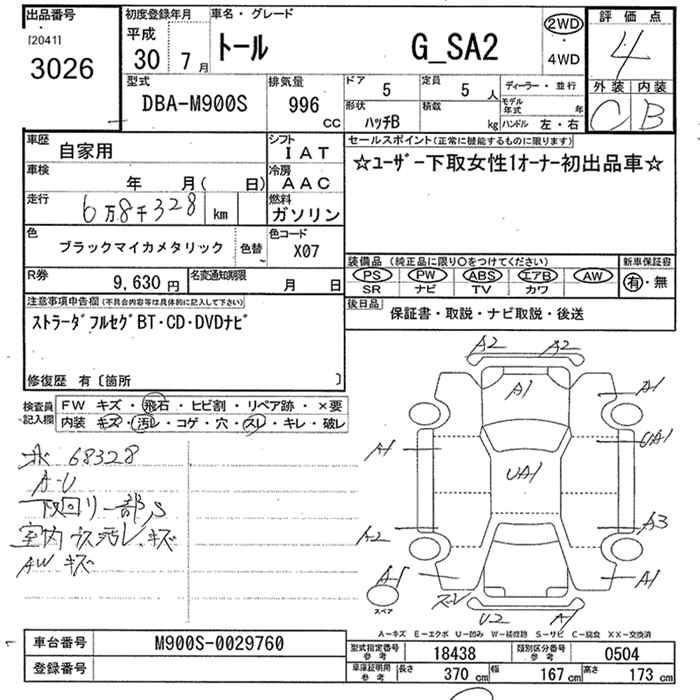 出品番号
[2041]
3026
初度登録年月
平成
30年 7月
車名・グレード
トール G_SA2
2WD
・
4WD
評価点
4
外装 内装
C B
型式
DBA-M900S
排気量
996
CC
ドア
5
定員
5人
形状
ハッチB
積載
kg
ディーラー・並行
モデル年式
年
ハンドル 左・右
車歴
自家用
シフト
IAT
車検
年 月( 日)
冷房
AAC
走行
6万8千328 km
燃料
ガソリン
色
ブラックマイカメタリック
色替
色コード
X07
R券
9,630円
名変通知期限
月 日
セールスポイント(正常に機能するものに限ります)
☆ユーザー下取女性1オーナー初出品車☆
装備品(純正品に限り○をつけてください)
PS・PW・ABS・エアB・AW
SR ナビ TV カワ
新車保証書
有・無
後日品
保証書・取説・ナビ取説・後送
注意事項申告欄(不具合内容等は具体的に記入して下さい)
ストラーダフルセグBT・CD・DVDナビ
修復歴 有〔箇所 〕
検査員記入欄
FW キズ・飛石・ヒビ割・リペア跡・×要
内装 キズ・汚レ・コゲ・穴・スレ・キレ・破レ
68328
A-U
下回り一部S
室内 汚レ、キズ
AW キズ
A2 A2
A1
A1
A1
UA1
UA1
A2
A3
A1
A1
スペア
U2
A1
A-キズ E-エクボ U-凹み W-補修跡 S-サビ C-腐食 XX-交換済
車台番号
M900S-0029760
登録番号
型式指定番号
参考
18438
類別区分番号
参考
0504
車庫証明用
参考
長さ 370cm 幅 167cm 高さ 173cm